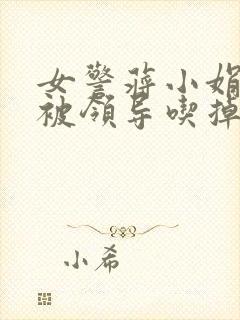 女警蒋小娟
被领导喫掉
小希